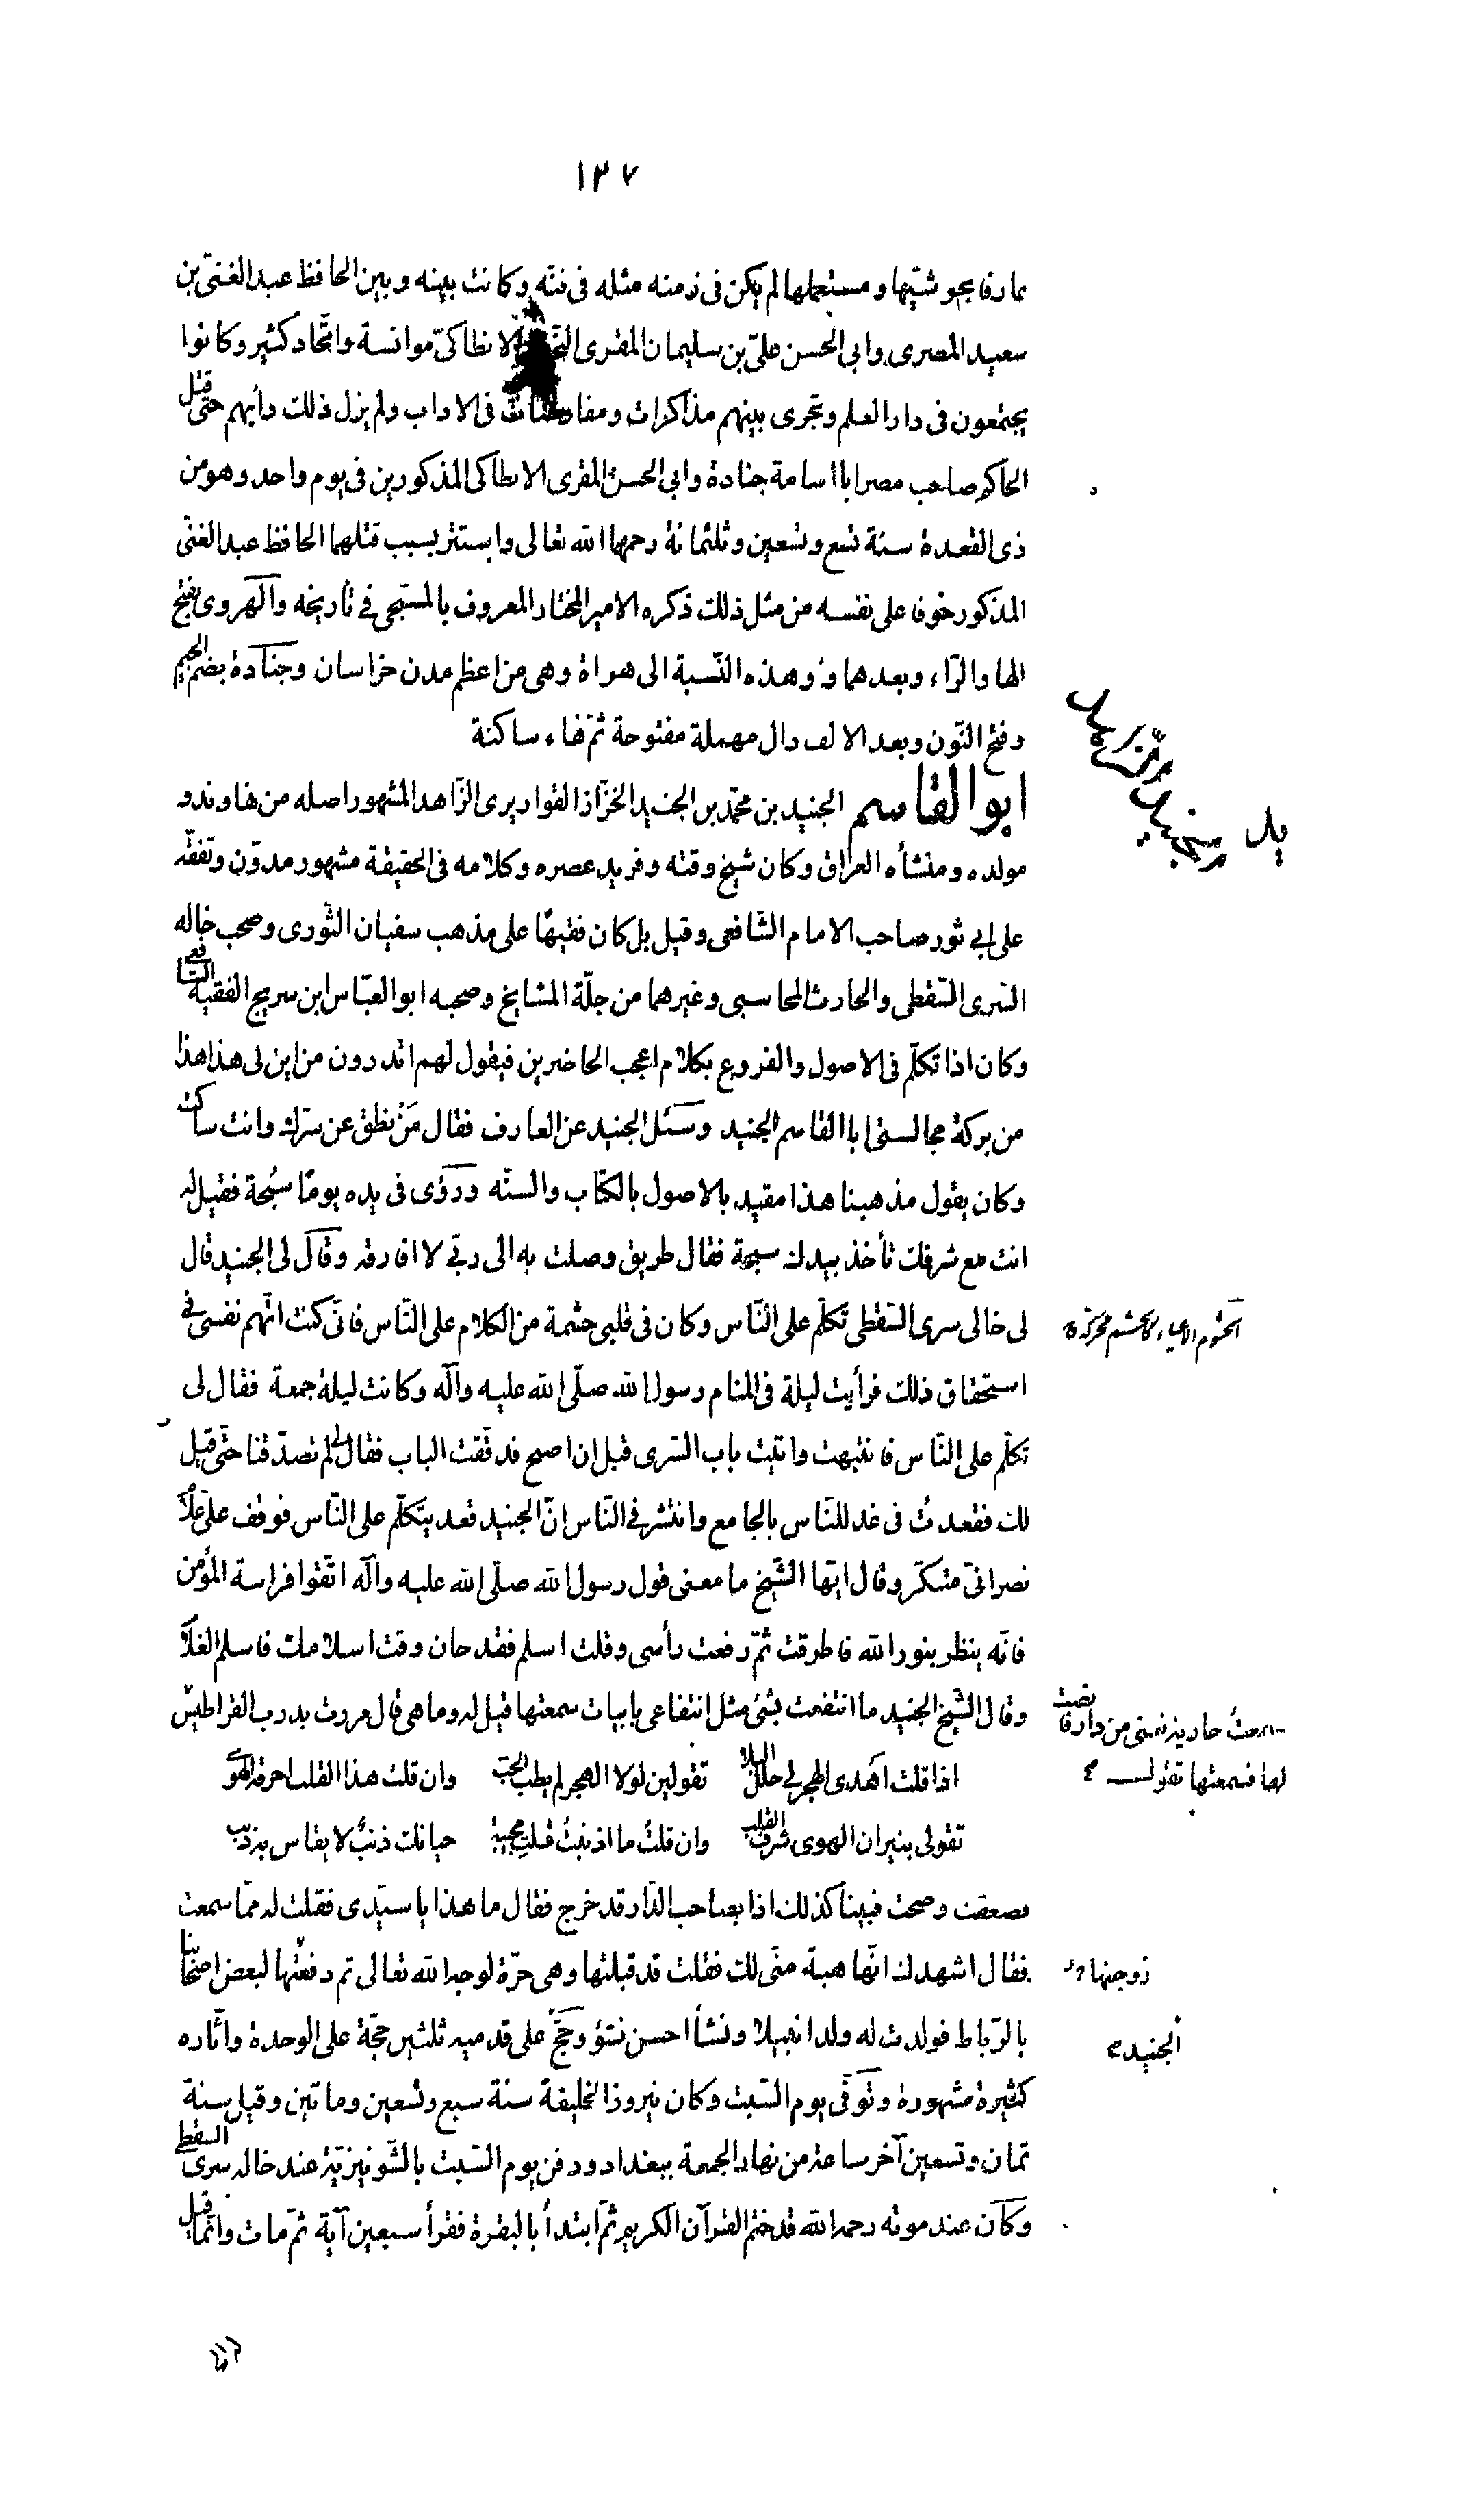 ١٣٧
عارفا بحوشيّها ومستعملها لم يكن فى زمنه مثله فى فنّه وكانت بينه وبين الحافظ عبد الغنىّ بن
سعيد المصرى وابى الحسن علىّ بن سليمان المقرى النحوى الانطاكىّ موانسة واتّحاد كثير وكانوا
يجتمعون فى دار العلم وتجرى بينهم مذاكرات ومفاوضات فى الاداب ولم يزل ذلك دأبهم حتّى قتل
الحاكم صاحب مصر ابا اسامة جنادة وابى الحسن المقرى الانطاكى المذكورين فى يوم واحد وهو من
ذى القعدة سنة تسع وتسعين وثلثمائة رحمهما الله تعالى واستتر بسبب قتلهما الحافظ عبد الغنى
المذكور خوفا على نفسه من مثل ذلك ذكره الامير المختار المعروف بالمسبّحى فى تأريخه والهروى بفتح
الها والرّاء وبعدهما و وهذه النّسبة الى هراة وهى من اعظم مدن خراسان وجنادة بضم الجيم
وفتح النّون وبعد الالف دال مهملة مفتوحة ثمّ هاء ساكنة
ابو القاسم الجنيد بن محمّد بن الجنيد الخزّاز القواريرى الزّاهد المشهور اصله من نهاوند و
مولده ومنشأه العراق وكان شيخ وقته وفريد عصره وكلامه فى الحقيقة مشهور مدوّن وتفقّه
على ابى ثور صاحب الامام الشّافعى وقيل بل كان فقيهًا على مذهب سفيان الثّورى وصحب خاله
السّرى السّقطى والحارث المحاسبى وغيرهما من جلّة المشايخ وصحبه ابو العبّاس ابن سريج الفقيه الشّافعى
وكان اذا تكلّم فى الاصول والفروع بكلام اعجب الحاضرين فيقول لهم اتدرون من اين لى هذا هذا
من بركة مجالستى ابا القاسم الجنيد وسئل الجنيد عن العارف فقال مَنْ نطق عن سرّك وانت ساكت
وكان يقول مذهبنا هذا مقيد بالاصول بالكتاب والسنّه ورؤى فى يده يومًا سُبحة فقيل له
انت مع شرفك تأخذ بيدك سبحة فقال طريق وصلت به الى ربّى لا افارقه وقال لى الجنيد قال
لى خالى سرى السّقطى تكلّم على النّاس وكان فى قلبى حشمة من الكلام على النّاس فانّى كنت اتّهم نفسى فى
الحشوم الاعياء كالحشم محركة
استحقاق ذلك فرأيت ليلة فى المنام رسول الله صلّى الله عليه وآله وكانت ليلة جمعة فقال لى
تكلّم على النّاس فانتبهت واتيت باب السّرى قبل ان اصبح فدققت الباب فقال لى لم تصدّقنا حتّى قيل
لك فقعدتُ فى غد للنّاس بالجامع وانتشر فى النّاس انّ الجنيد قعد يتكلّم على النّاس فوقف علىّ غلام
نصرانى متنكّر وقال ايّها الشّيخ ما معنى قول رسول الله صلّى الله عليه وآله اتّقوا فراسة المؤمن
فانّه ينظر بنور الله فاطرقت ثمّ رفعت رأسى وقلت اسلم فقد حان وقت اسلامك فاسلم الغلام
وقال الشّيخ الجنيد ما انتفعت بشئ مثل انتفاعى بابيات سمعتها قيل له وما هى قال مررت بدرب القراطيس
سمعتُ جارية تغنى من دار فانصت
لها فسمعتها تقول
اذا قلت اهدى الهجر لى حلل البلا تقولين لولا الهجر لم يطب الحب وان قلت هذا القلب احرقه الهوى
تقولى بنيران الهوى شرف القلب وان قلتُ ما اذنبتُ قلتِ مجيبة حياتك ذنبٌ لا يقاس به ذنب
فصعقت وصحت فبينا كذلك اذا بصاحب الدّار قد خرج فقال ما هذا يا سيّدى فقلت له ممّا سمعت
فقال اشهدك انّها هبة منّى لك فقلت قد قبلتها وهى حرّة لوجه الله تعالى ثم دفعتها لبعض اصحابنا
زوجتها
بالرّباط فولدت له ولدا نبيلا ونشأ احسن نشؤ وحَجّ على قدميه ثلثين حجّة على الوحدة واثاره
الجنيد
كثيرة مشهورة وتوفّى يوم السّبت وكان نيروز الخليفة سنة سبع وتسعين وماتين وقيل سنة
ثمان وتسعين آخر ساعة من نهار الجمعة ببغداد ودفن يوم السّبت بالشّونيزيّة عند خاله سرى السقطى
وكان عند موته رحمه الله قد ختم القرآن الكريم ثمّ ابتدأ بالبقرة فقرأ سبعين آية ثمّ مات وانّما قيل